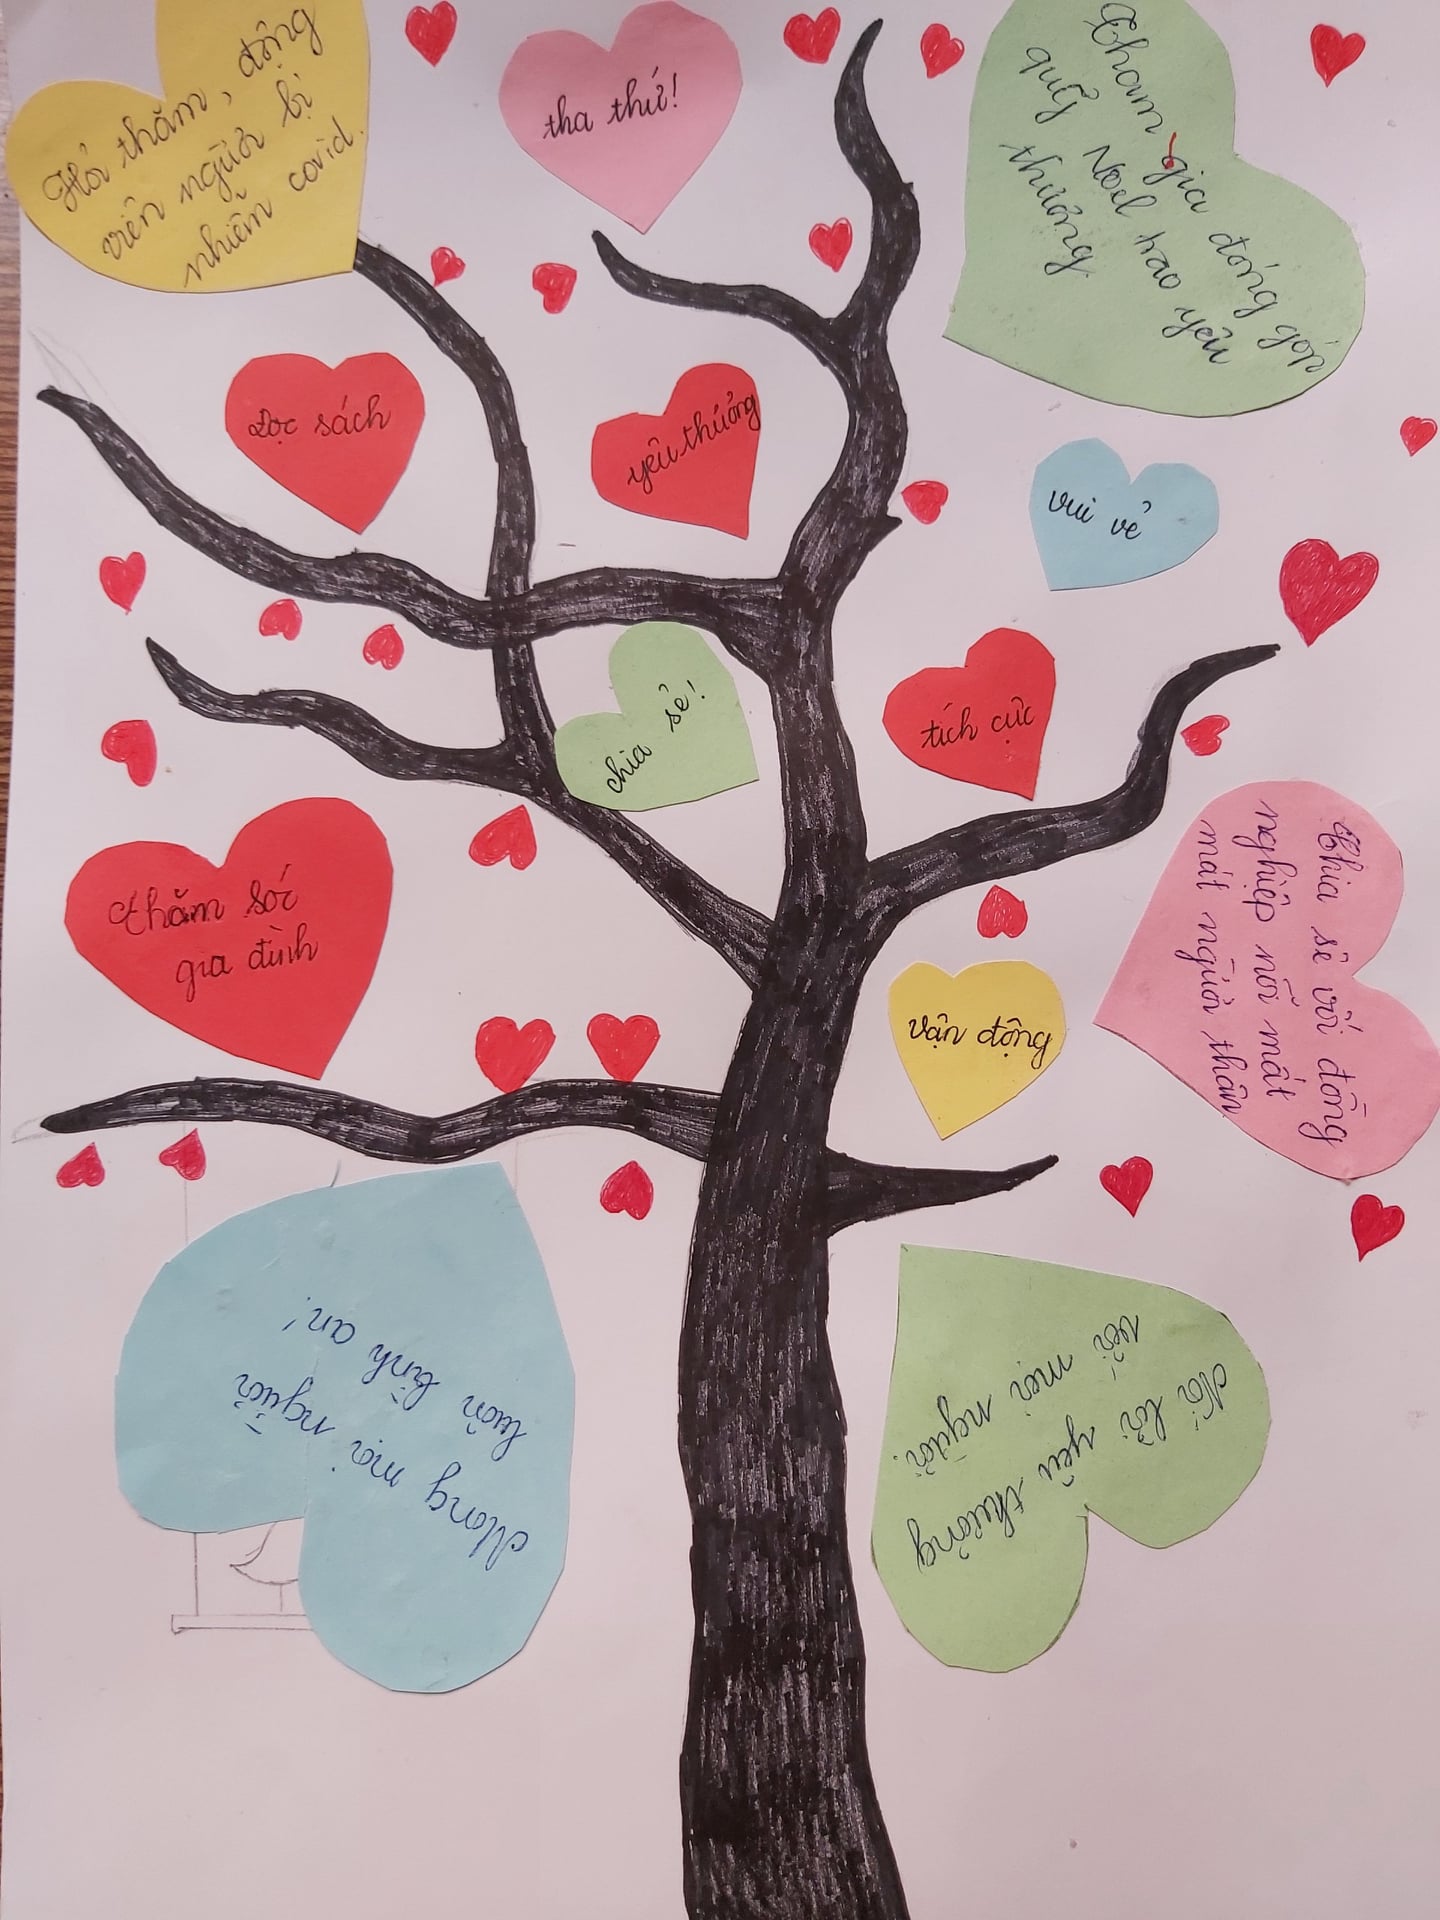 Hỏi thăm, động
viên người bị
nhiễm covid.
tha thứ!
Tham gia đóng góp
quỹ Noel trao yêu
thương
Đọc sách
yêu thương
vui vẻ
chia sẻ!
tích cực
Chăm sóc
gia đình
Chia sẻ với đồng
nghiệp nỗi mất
mát người thân
vận động
Mong mọi người
luôn bình an!
Nói lời yêu thương
với mọi người!